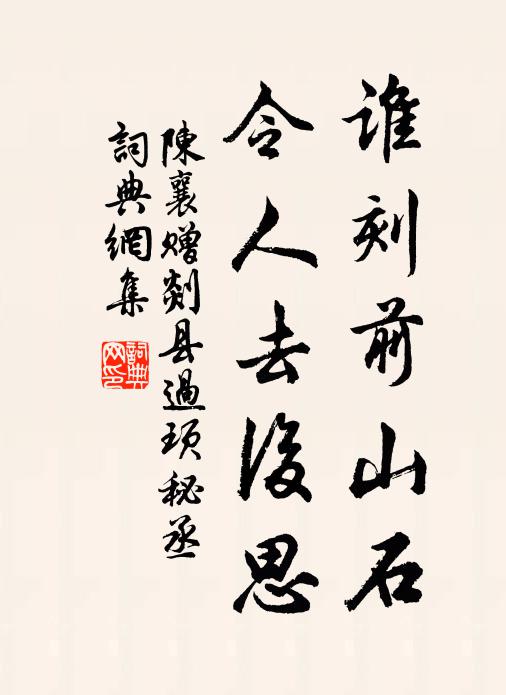 誰刻前山石
令人去後思
陳襄贈剡县過項秘丞
詞典網集
詞典網印